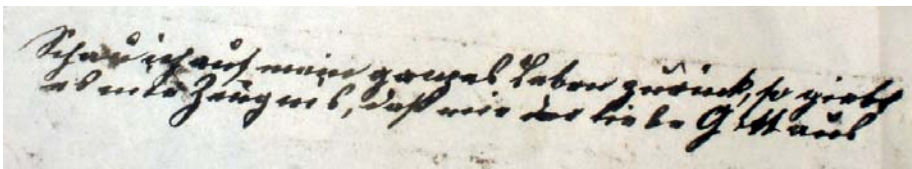 Schau ich auf mein ganzes Leben zurück, so giebt
es mir Zeugnis, daß mir der liebe Gott aus